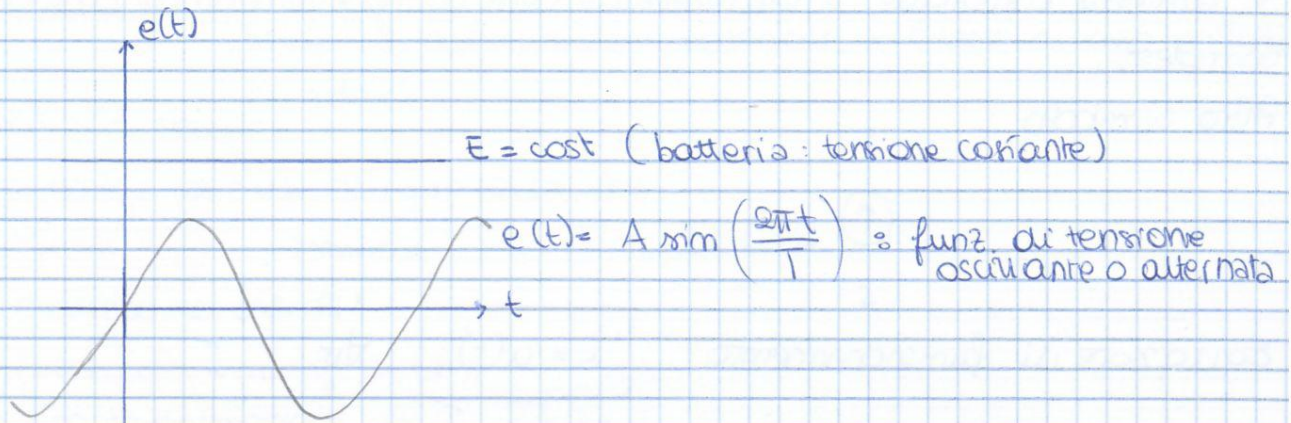 e(t)
E = cost (batteria: tensione costante)
e(t) = A sin (2πt/T) : funz. di tensione
oscillante o alternata
t